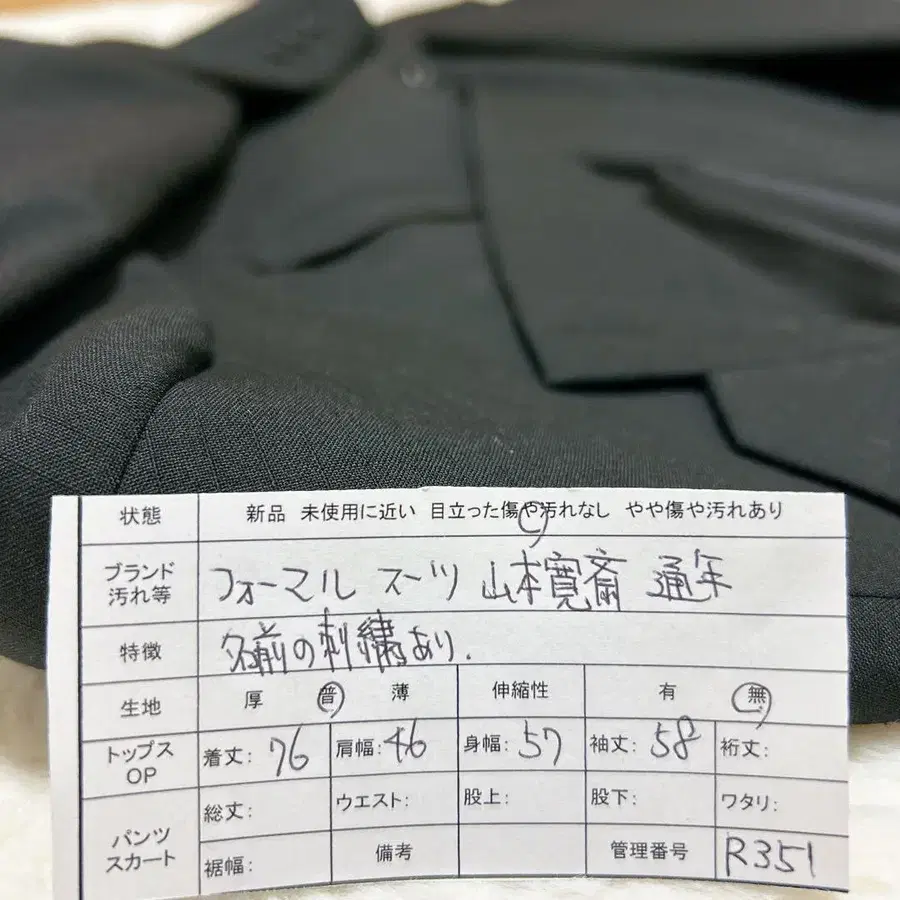 状態 新品 未使用に近い 目立った傷や汚れなし やや傷や汚れあり
ブランド
汚れ等 フォーマル スーツ 山本寛斎 通年
特徴 名前の刺繍あり.
生地 厚 普 薄 伸縮性 有 無
トップス
OP 着丈: 76 肩幅: 46 身幅: 57 袖丈: 58 裄丈:
パンツ
スカート 総丈: ウエスト: 股上: 股下: ワタリ:
裾幅: 備考 管理番号 R351